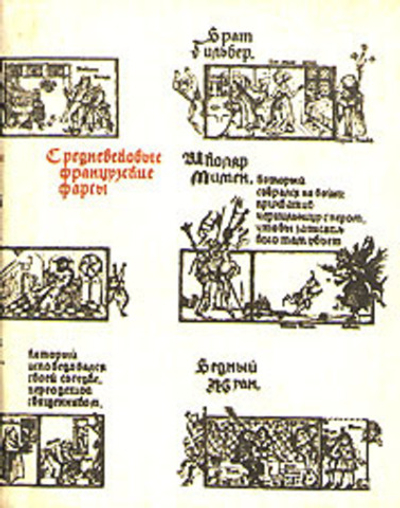 Брат
Гильбер.
Средневековые
французские
фарсы
Школяр
Мимен,
который
собрался на войну
прихватив
чернильницу с пером,
чтобы записать
кого там убьют
который
исповедовался
своей соседке,
переодетой
священником.
Бедный
Жуан.